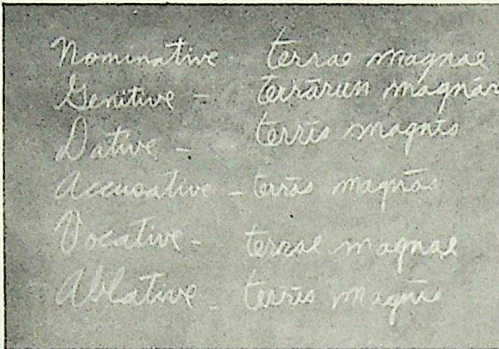 Nominative - terrae magnae
Genitive - terrārum magnār
Dative - terrīs magnīs
Accusative - terrās magnās
Vocative - terrae magnae
Ablative - terrīs magnīs